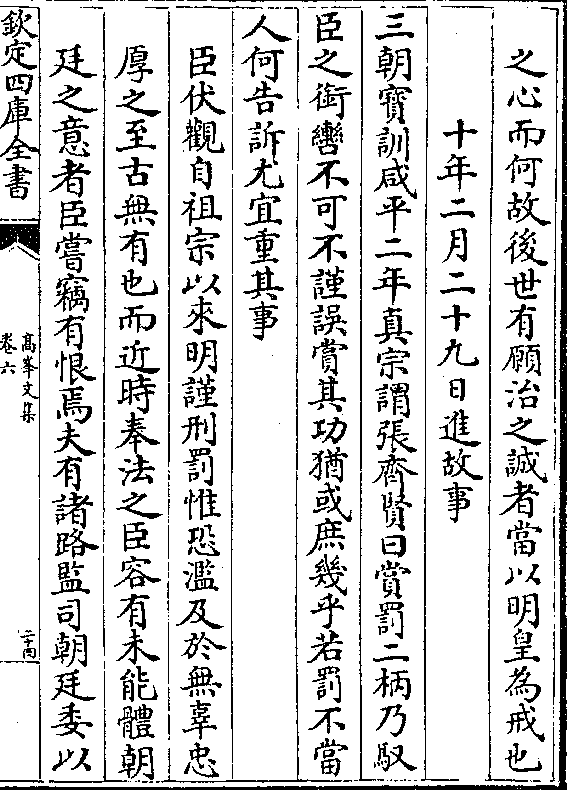 之心而何故後世有願治之誠者當以明皇為戒也
十年二月二十九日進故事
三朝寳訓咸平二年真宗謂張齊賢曰賞罰二柄乃馭
臣之銜轡不可不謹誤賞其功猶或庶幾乎若罰不當
人何告訴尤宜重其事
臣伏觀自祖宗以來明謹刑罰惟恐濫及於無辜忠
厚之至古無有也而近時奉法之臣容有未能體朝
廷之意者臣嘗竊有恨焉夫有諸路監司朝廷委以
欽定四庫全書
髙峯文集
卷六
二十四